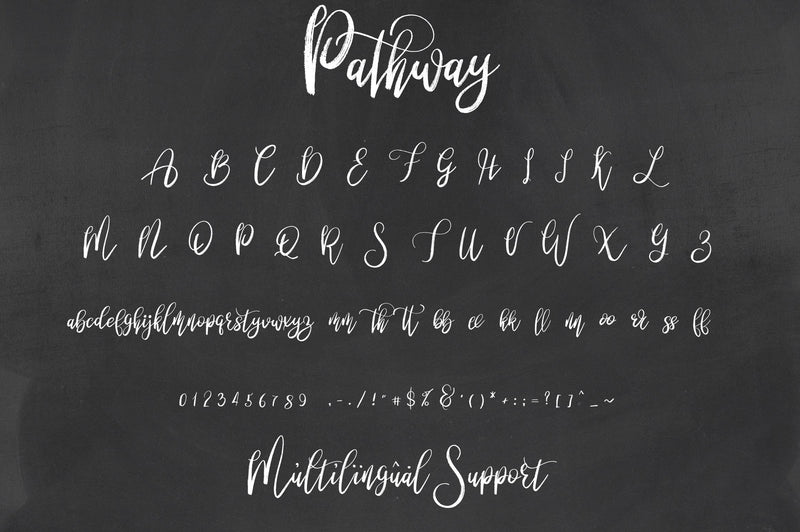 Pathway
A B C D E F G H I J K L
M N O P Q R S T U V W X Y Z
abcdefghijklmnopqrstyvwxyz mm Th tt bb ee kk ll nn oo rr ss ff
0123456789 ,-./!"#$%&'()*+:;=?[]^_~
Mùltilïngûäl Support